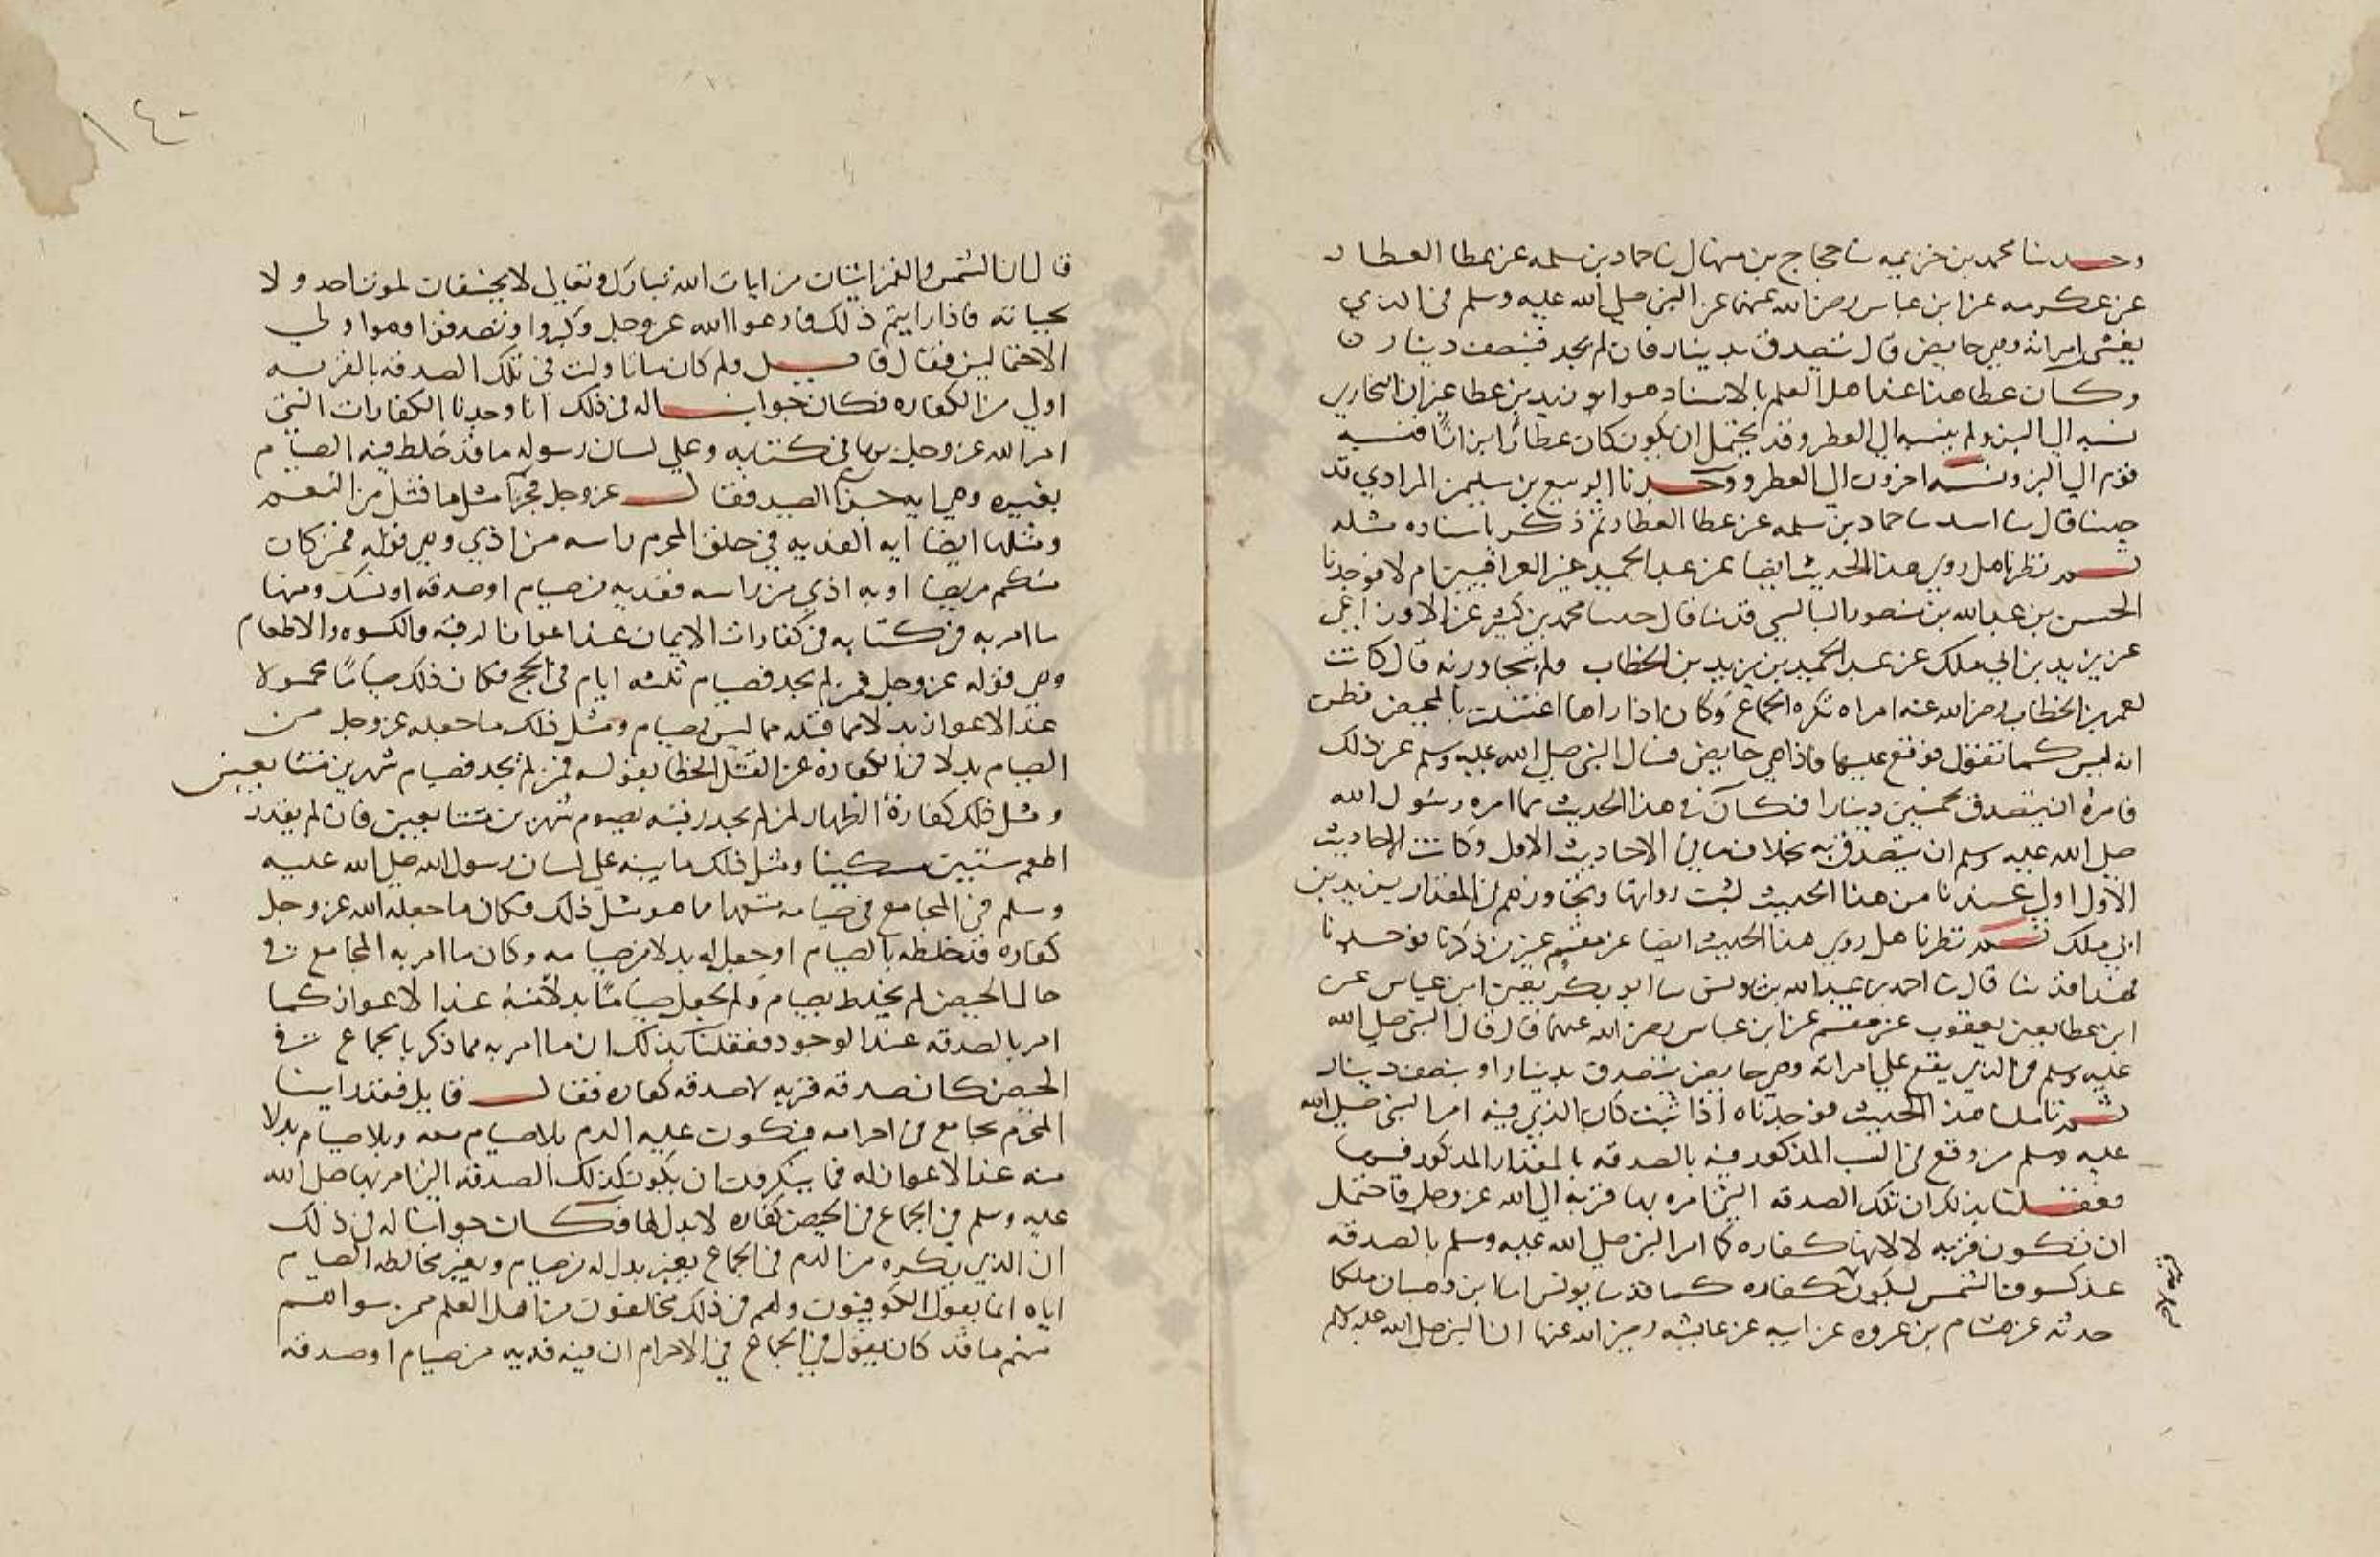 وحدثنا محمد بن خزيمه ثنا حجاج بن منهال ثنا حماد بن سلمه عن عطا العطار
عن عكرمه عن ابن عباس رضي الله عنهما عن النبي صلى الله عليه وسلم في الذي
يغشى امراته وهي حايض قال يتصدق بدينار فان لم يجد فنصف دينار
وكان عطا هذا عند اهل العلم بالاسناد هو ابو يزيد بن عطا غير ان البخاري
نسبه الى البز ولم ينسبه الى العطر وقد يحتمل ان يكون كان عطارا بزازا فنسبه
قوم الى البز ونسبه اخرون الى العطر وحدثنا الربيع بن سليمن المرادي قد
حدثنا قال ثنا اسد ثنا حماد بن سلمه عن عطا العطار ثم ذكر باسناده مثله
ثم نظرنا هل روي هذا الحديث ايضا عن عبد الحميد غير العراقيين ام لا فوجدنا
الحسن بن عبد الله بن منصور البالسي قد ثنا قال حدثنا محمد بن كثير عن الاوزاعي
عن يزيد بن ابي ملك عن عبد الحميد بن يزيد بن الخطاب ولم يتجاوز به قال كانت
لعمر بن الخطاب رضي الله عنه امراه تكره الجماع وكان اذا راها اعتلت بالمحيض فظن
انه ليس كما تقول فوقع عليها فاذا هي حايض فسال النبي صلى الله عليه وسلم عن ذلك
فامره ان يتصدق بخمسين دينارا فكان في هذا الحديث مما امره رسول الله
صلى الله عليه وسلم ان يتصدق به خلاف ما في الاحاديث الاول وكانت الاحاديث
الاول اولى عندنا من هذا الحديث لثبت رواتها وتجاوزهم في المقدار يزيد بن
ابي ملك ثم نظرنا هل روي هذا الحديث ايضا عن مقسم عن من ذكرنا فوجدنا
فهدا قد ثنا قال ثنا احمد بن عبد الله بن يونس ثنا ابو بكر يعني ابن عياش عن
ابن عطا يعني يعقوب عن مقسم عن ابن عباس رضي الله عنهما قال قال النبي صلى الله
عليه وسلم في الذي يقع على امراته وهي حايض يتصدق بدينار او بنصف دينار
ثم تاملنا هذا الحديث فوجدناه اذا ثبت كان الذي فيه امر النبي صلى الله
عليه وسلم من وقع في السبب المذكور فيه بالصدقه بالمقدار المذكور فيها
فعقلنا بذلك ان تلك الصدقه التي امره بها قربه الى الله عز وجل فاحتمل
ان تكون قربه لا لانها كفاره كما امر النبي صلى الله عليه وسلم بالصدقه
عند كسوف الشمس ليكون كفاره كما قد ثنا يونس انا ابن وهب ان ملكا
حدثه عن هشام بن عروه عن ابيه عن عايشه رضي الله عنها ان النبي صلى الله عليه وسلم
١٤٠
قال ان الشمس والقمر ايتان من ايات الله تبارك وتعالى لا يخسفان لموت احد ولا
لحياته فاذا رايتم ذلك فادعوا الله عز وجل وكبروا وتصدقوا وهو اولى
الاحتمالين فقال قايل ولم كان ما تاولت في تلك الصدقه بالقربه
اولى من الكفاره فكان جوابنا له في ذلك انا وجدنا الكفارات التي
امر الله عز وجل بها في كتابه وعلى لسان رسوله ما قد خلط فيه الصيام
بغيره وهي ايه جزا الصيد فقال عز وجل فجزآ مثل ما قتل من النعم
ومثلها ايضا ايه الفديه في حلق المحرم راسه من اذي وهي قوله فمن كان
منكم مريضا او به اذى من راسه ففديه من صيام او صدقه او نسك ومنها
ما امر به في كتابه في كفارات الايمان عند اعواز الرقبه والكسوه والاطعام
وهي قوله عز وجل فمن لم يجد فصيام ثلثه ايام في الحج فكان ذلك صياما مجمولا
عند الاعواز بدلا مما قبله مما ليس بصيام ومثل ذلك ما جعله عز وجل من
الصيام بدلا في الكفارة عن القتل الخطا بقوله فمن لم يجد فصيام شهرين متتابعين
ومثل ذلك كفارة الظهار لمن لم يجد رقبه يصوم شهرين متتابعين فان لم يقدر
اطعم ستين مسكينا ومثل ذلك ما بينه على لسان رسول الله صلى الله عليه
وسلم في المجامع في صيامه متعمدا ما هو مثل ذلك فكان ما جعله الله عز وجل
كفاره قد خلطه بالصيام او جعل له بدلا من صيامه وكان ما امر به المجامع في
حال الحيض لم يخلط بصيام ولم يجعل صياما بدلا منه عند الاعواز كما
امر بالصدقه عند الوجود فعقلنا بذلك ان ما امر به مما ذكر بالجماع في
الحيض كان صدقه قربه لا صدقه كفاره فقال قايل فقد راينا
المحرم يجامع في احرامه فيكون عليه الدم بلا صيام معه وبلا صيام بدلا
منه عند الاعواز له فما ينكر وقت ان يكون كذلك الصدقه التي امر بها صلى الله
عليه وسلم في الجماع في الحيض كفاره لا بدل لها فكان جوابنا له في ذلك
ان الذي يذكره من الدم في الجماع بغير بدل له من صيام وبغير مخالطه الصيام
اياه انما يقوله الكوفيون ولهم في ذلك مخالفون من اهل العلم ممن سواهم
منهم ما قد كان يقول في الجماع في الاحرام ان فيه فديه من صيام او صدقه